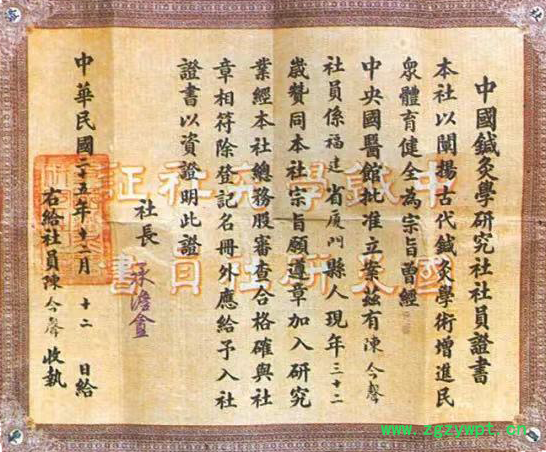 中國鍼灸學研究社社員證書
本社以闡揚古代鍼灸學術增進民
衆體育健全為宗旨曾經
中央國醫館批准立案兹有陳今聲
社員係福建省厦門縣人現年三十二
歲贊同本社宗旨願遵章加入研究
業經本社總務股審查合格確與社
章相符除登記名冊外應給予入社
證書以資證明此證
社長
承澹盦
中華民國二十五年十二月十二日給
右給社員陳今聲收執
中國鍼灸學研究社社員證書
www.zgzywpt.cn